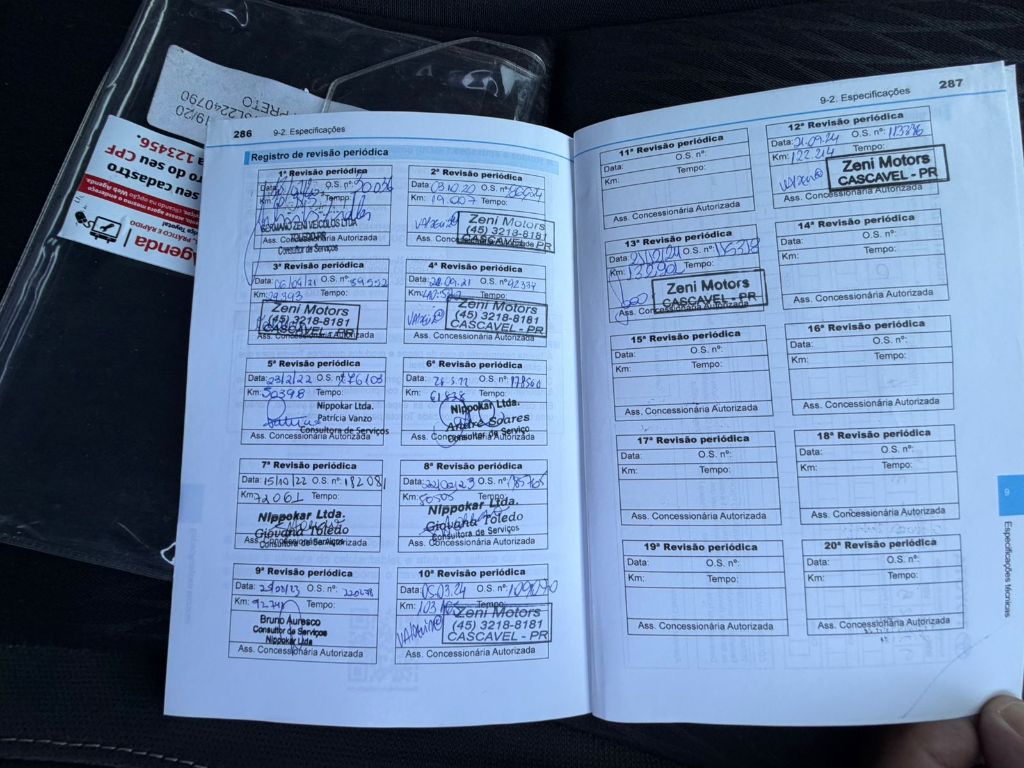 19/20
PRETO
SL2240790
a 123456.
ro do seu CPF
seu cadastro
Agenda
286
9-2. Especificações
Registro de revisão periódica
1ª Revisão periódica
Data: O.S. nº:
GERMANO ZENI VEICOLOS LTDA
Consultor de Serviços
Ass. Concessionária Autorizada
2ª Revisão periódica
Data: 03.10.20 O.S. nº:
Km: 19.007 Tempo:
Zeni Motors
(45) 3218-8181
CASCAVEL - PR
Ass. Concessionária Autorizada
3ª Revisão periódica
Data: O.S. nº:
Km: 29393 Tempo:
Zeni Motors
(45) 3218-8181
CASCAVEL - PR
Ass. Concessionária Autorizada
4ª Revisão periódica
Data: O.S. nº: 92334
Km: Tempo:
Zeni Motors
(45) 3218-8181
CASCAVEL - PR
Ass. Concessionária Autorizada
5ª Revisão periódica
Data: 23/2/22 O.S. nº: 176103
Km: 50398 Tempo:
Nippokar Ltda.
Patrícia Vanzo
Consultora de Serviços
Ass. Concessionária Autorizada
6ª Revisão periódica
Data: O.S. nº: 178560
Km: 61838 Tempo:
Nippokar Ltda.
André Soares
Consultor de Serviço
Ass. Concessionária Autorizada
7ª Revisão periódica
Data: 15/10/22 O.S. nº: 182081
Km: 72061 Tempo:
Nippokar Ltda.
Giovana Toledo
Consultora de Serviços
Ass. Concessionária Autorizada
8ª Revisão periódica
Data: 22/02/23 O.S. nº:
Km: 80505 Tempo:
Nippokar Ltda.
Giovana Toledo
Consultora de Serviços
Ass. Concessionária Autorizada
9ª Revisão periódica
Data: O.S. nº:
Km: Tempo:
Bruno Auresco
Consultor de Serviços
Nippokar Ltda
Ass. Concessionária Autorizada
10ª Revisão periódica
Data: 05.03.24 O.S. nº:
Km: Tempo:
Zeni Motors
(45) 3218-8181
CASCAVEL - PR
Ass. Concessionária Autorizada
9-2. Especificações
287
11ª Revisão periódica
Data: O.S. nº:
Km: Tempo:
Ass. Concessionária Autorizada
12ª Revisão periódica
Data: 21.09.24 O.S. nº: 113336
Km: 122.214 Tempo:
Zeni Motors
CASCAVEL - PR
Ass. Concessionária Autorizada
13ª Revisão periódica
Data: O.S. nº:
Km: Tempo:
Zeni Motors
CASCAVEL - PR
Ass. Concessionária Autorizada
14ª Revisão periódica
Data: O.S. nº:
Km: Tempo:
Ass. Concessionária Autorizada
15ª Revisão periódica
Data: O.S. nº:
Km: Tempo:
Ass. Concessionária Autorizada
16ª Revisão periódica
Data: O.S. nº:
Km: Tempo:
Ass. Concessionária Autorizada
17ª Revisão periódica
Data: O.S. nº:
Km: Tempo:
Ass. Concessionária Autorizada
18ª Revisão periódica
Data: O.S. nº:
Km: Tempo:
Ass. Concessionária Autorizada
19ª Revisão periódica
Data: O.S. nº:
Km: Tempo:
Ass. Concessionária Autorizada
20ª Revisão periódica
Data: O.S. nº:
Km: Tempo:
Ass. Concessionária Autorizada
9
Especificações técnicas